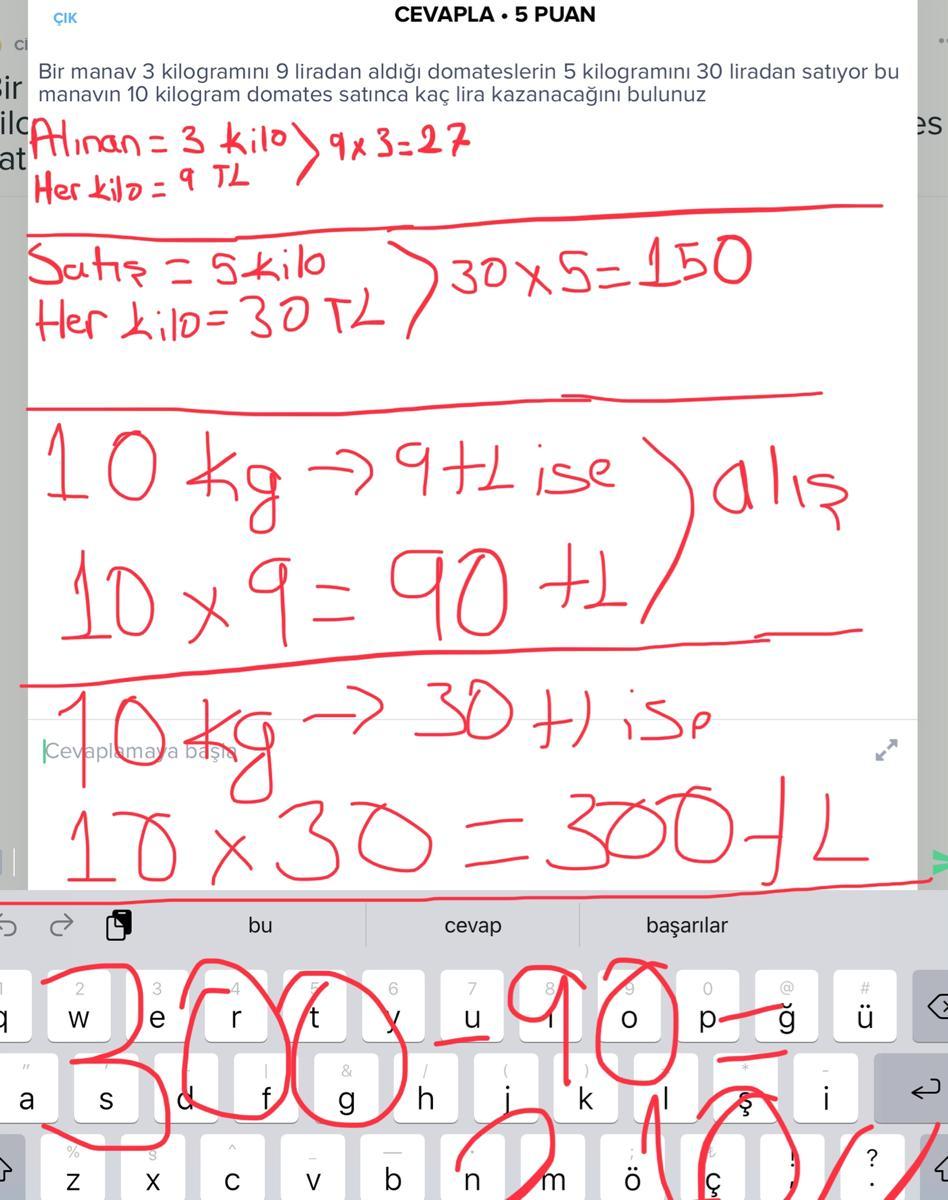 ÇIK
CEVAPLA • 5 PUAN
Bir manav 3 kilogramını 9 liradan aldığı domateslerin 5 kilogramını 30 liradan satıyor bu
manavın 10 kilogram domates satınca kaç lira kazanacağını bulunuz
Alınan = 3 kilo 9x3=27
Her kilo = 9 TL
Satış = 5 kilo 30x5=150
Her kilo = 30 TL
10 kg → 9 tL ise alış
10 x 9 = 90 tL
10 kg → 30 tl ise
Cevaplamaya başla
10 x 30 = 300 tL
bu cevap başarılar
300 - 90 =
210
1 2 3 4 5 6 7 8 9 0 @ #
q w e r t y u ı o p ğ ü
a s d f g h j k l ş i
z x c v b n m ö ç